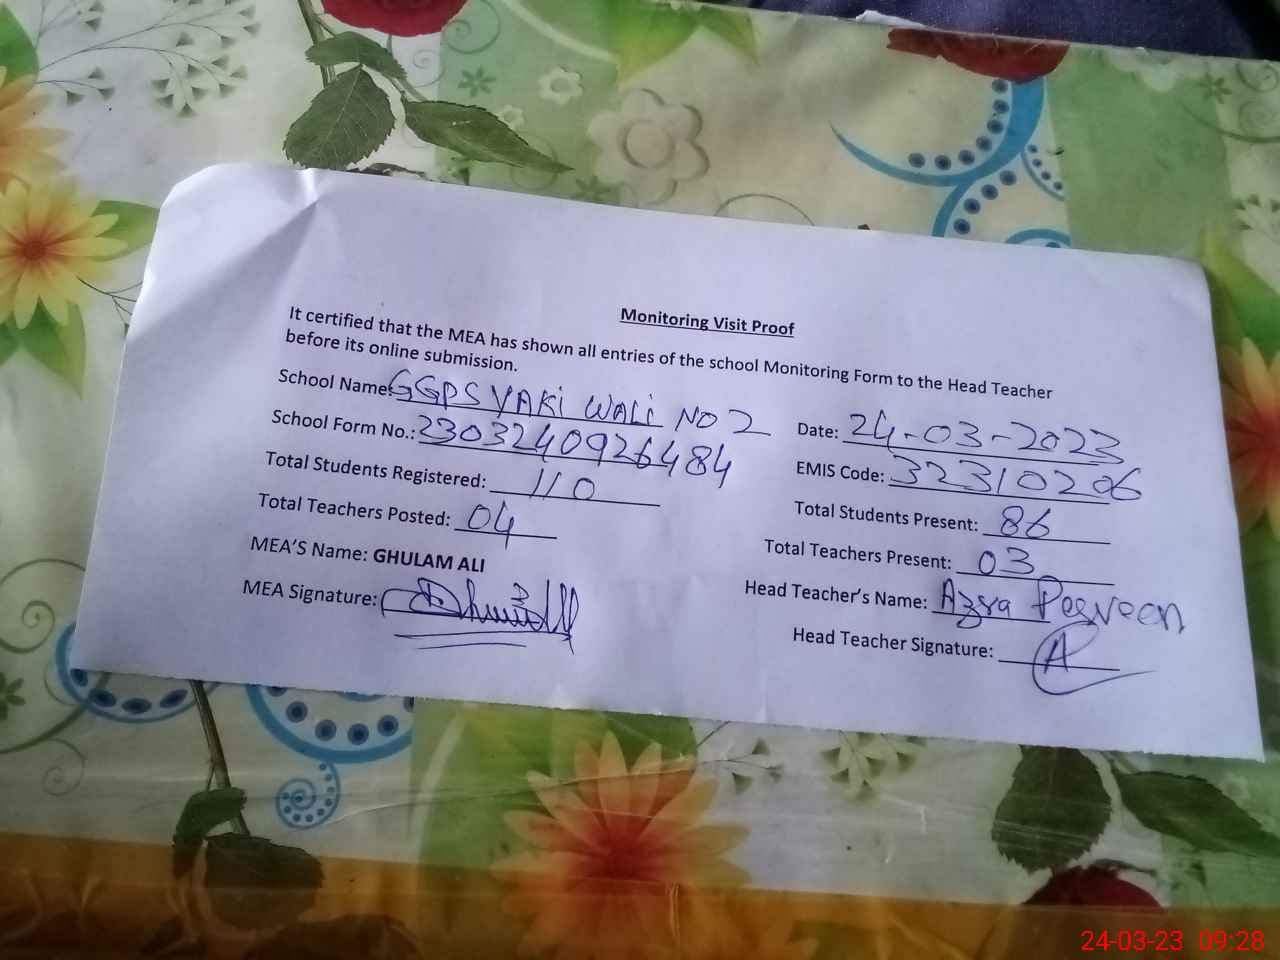 Monitoring Visit Proof
It certified that the MEA has shown all entries of the school Monitoring Form to the Head Teacher
before its online submission.
School Name: GGPS YAKi WALi NO 2
Date: 24-03-2023
School Form No.: 2303240926484
EMIS Code: 32310206
Total Students Registered: 110
Total Students Present: 86
Total Teachers Posted: 04
Total Teachers Present: 03
MEA'S Name: GHULAM ALI
Head Teacher's Name: Azra Perveen
MEA Signature:
Head Teacher Signature: A
24-03-23 09:28